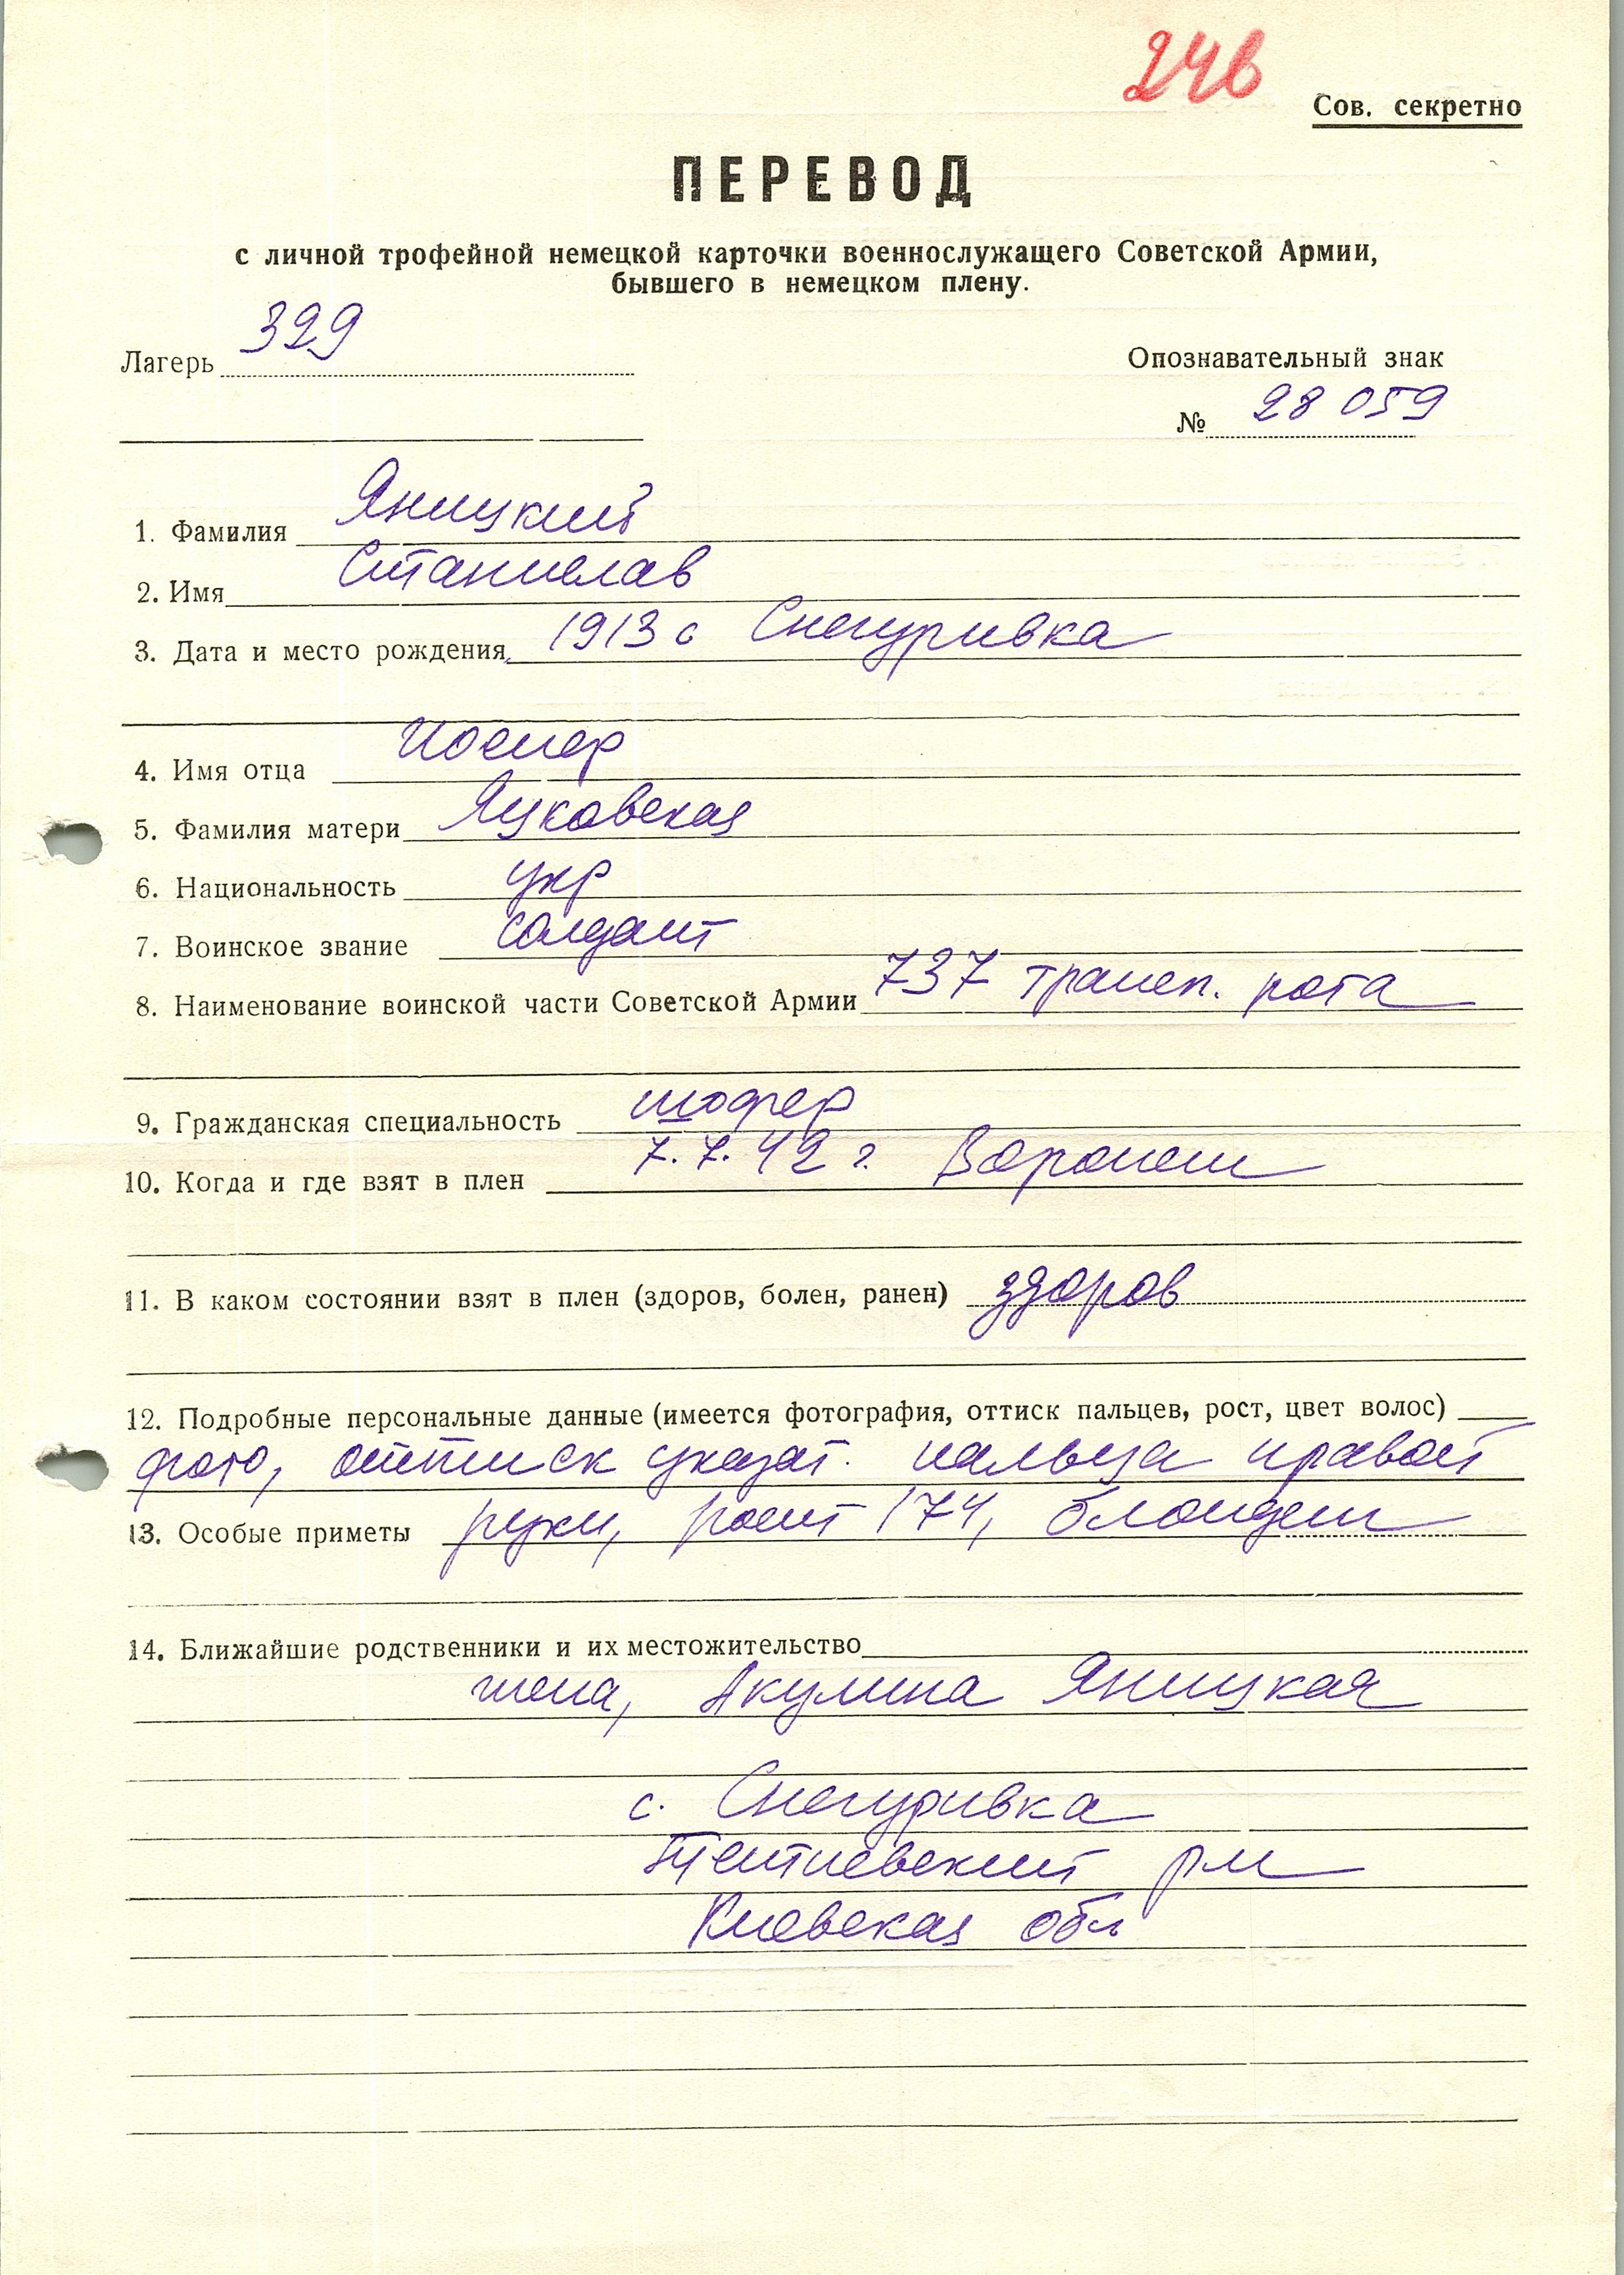 24в
Сов. секретно
ПЕРЕВОД
с личной трофейной немецкой карточки военнослужащего Советской Армии,
бывшего в немецком плену.
Лагерь 329
Опознавательный знак
№ 28 059
1. Фамилия Яницкий
2. Имя Станислав
3. Дата и место рождения 1913 с Снегуривка
4. Имя отца Иосиф
5. Фамилия матери Яцковская
6. Национальность укр
7. Воинское звание солдат
8. Наименование воинской части Советской Армии 737 трансп. рота
9. Гражданская специальность шофер
10. Когда и где взят в плен 7.7.42 г. Воронеж
11. В каком состоянии взят в плен (здоров, болен, ранен) здоров
12. Подробные персональные данные (имеется фотография, оттиск пальцев, рост, цвет волос)
фото, оттиск указат. пальца правой
13. Особые приметы руки, рост 174, блондин
14. Ближайшие родственники и их местожительство
жена, Акулина Яницкая
с. Снегуривка
рн
Киевская обл